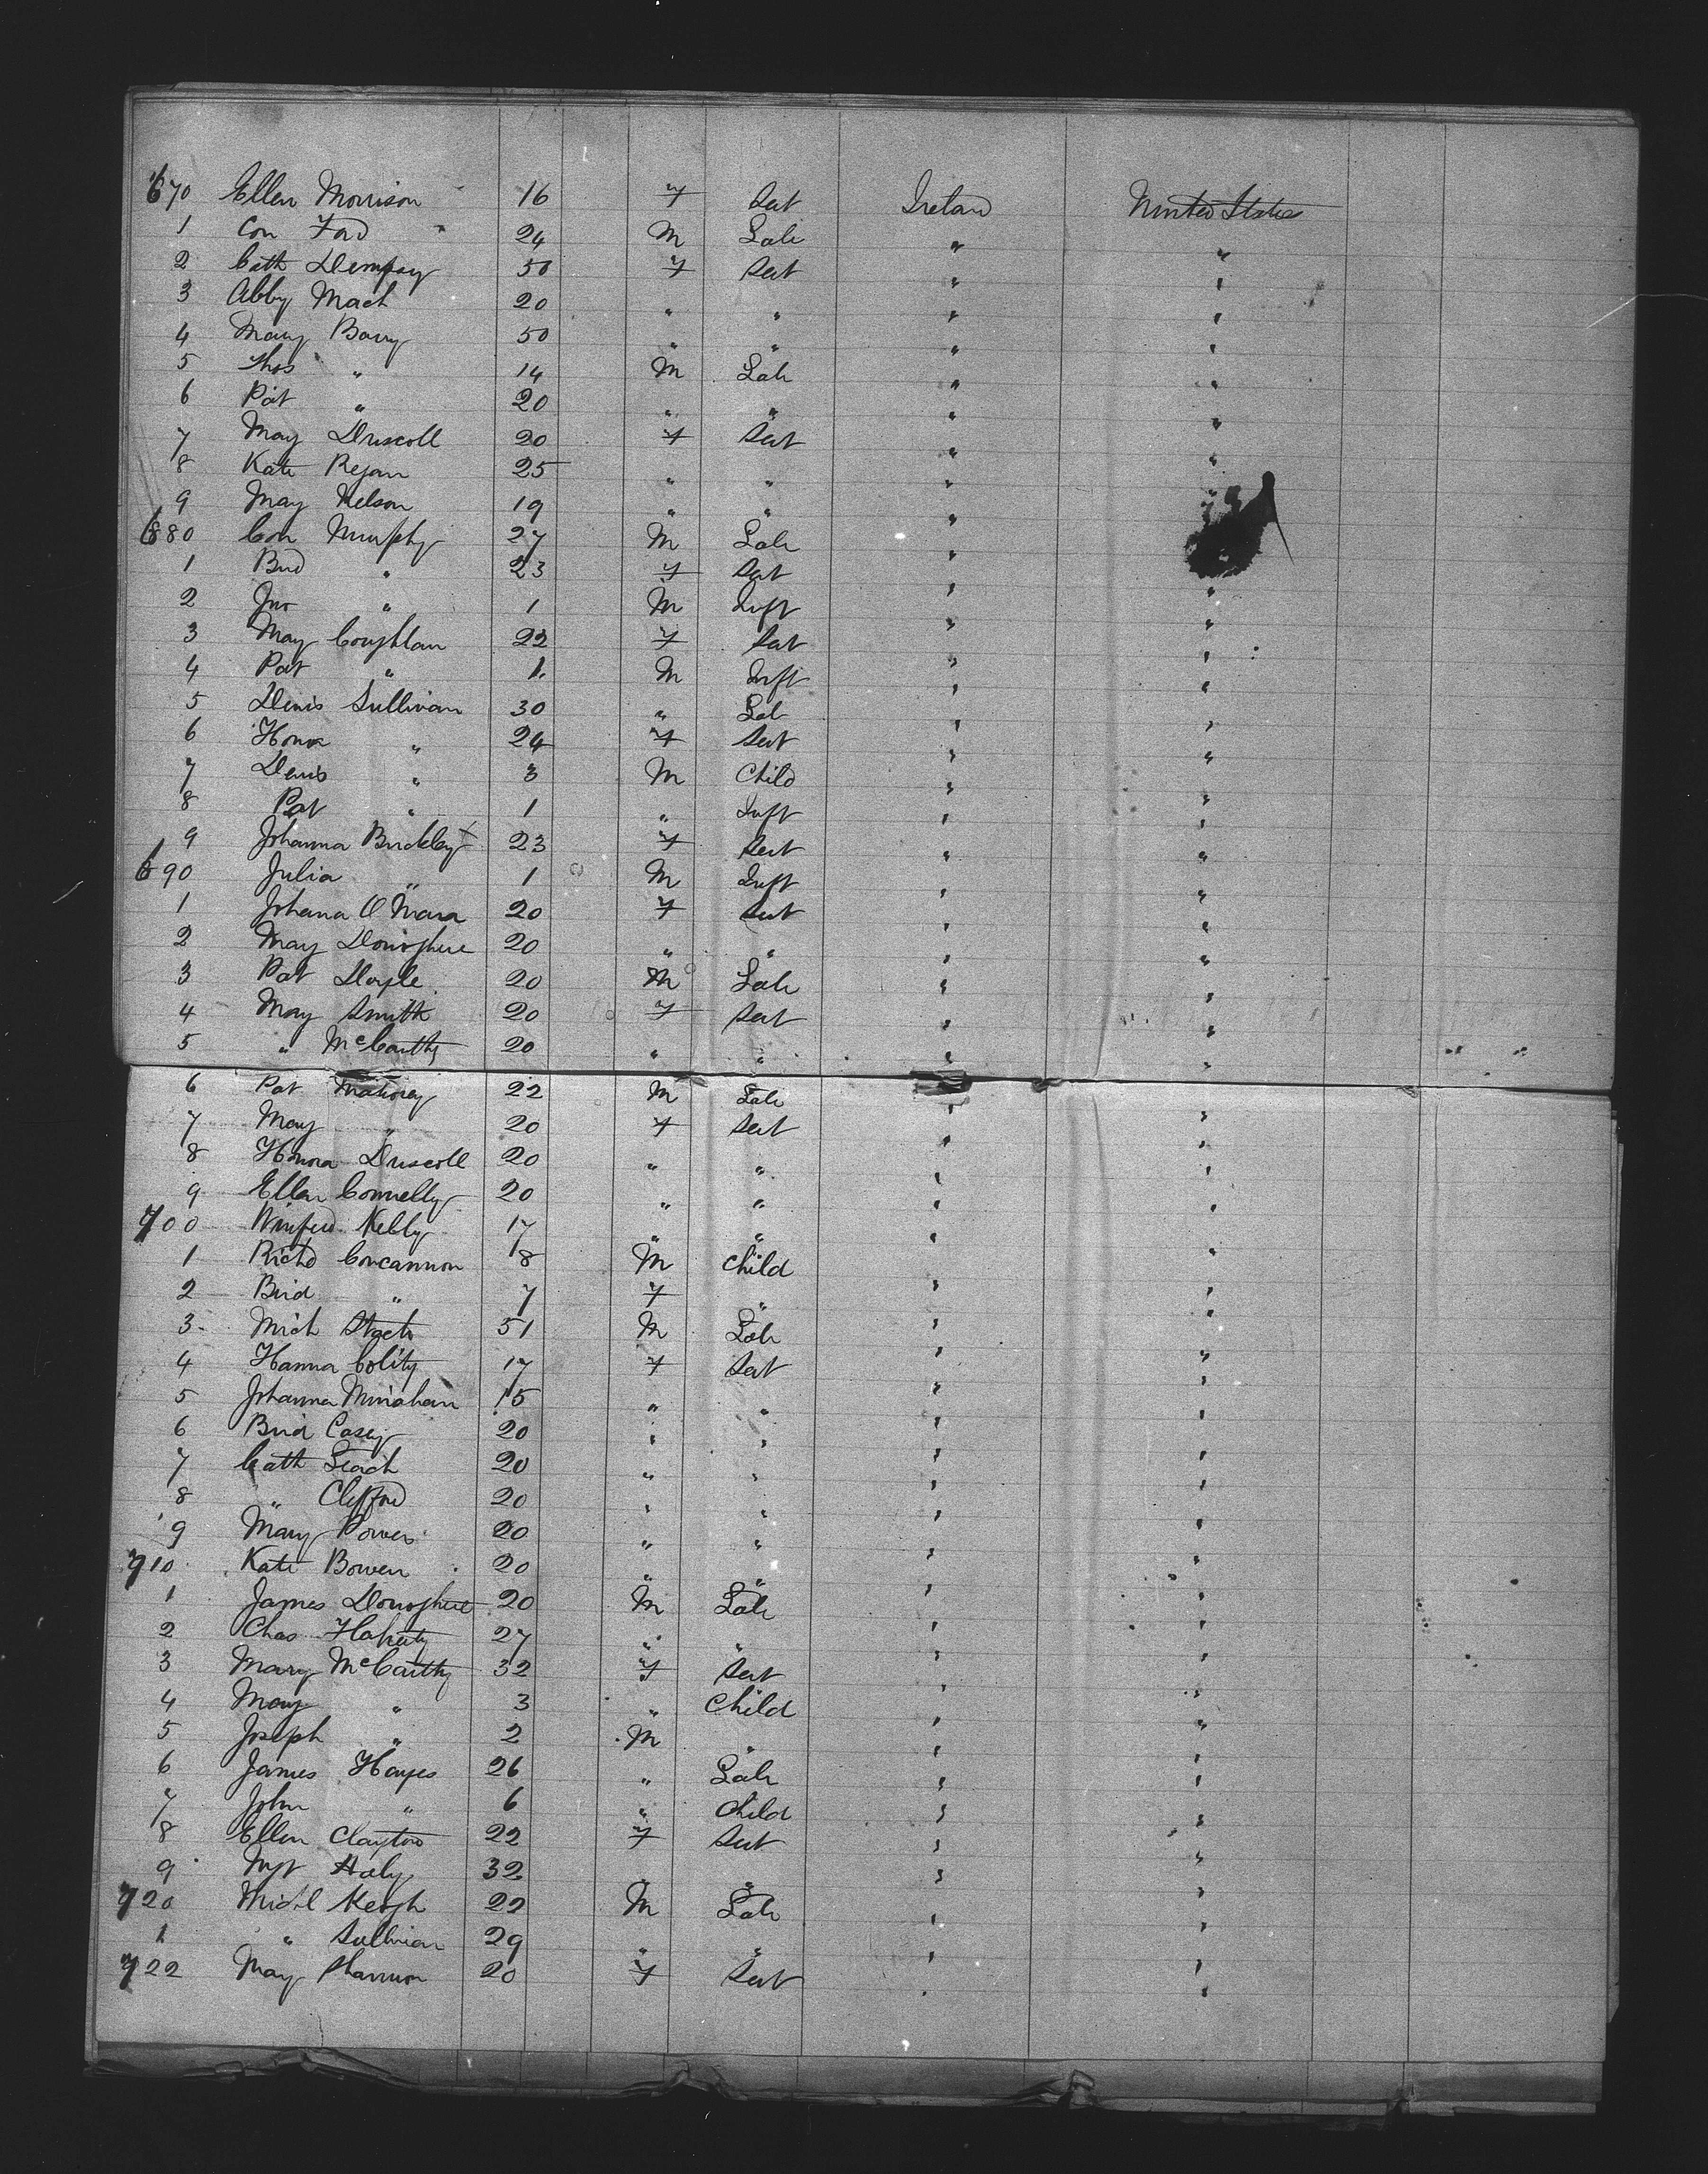 670 Ellen Morrison 16 F Servt Ireland United States
1 Con Ford 24 M Lab " "
2 Cath Dempsey 50 F Servt " "
3 Abby Mack 20 " " " "
4 Mary Barry 50 " " " "
5 Thos " 14 M Lab " "
6 Pat " 20 " " " "
7 Mary Driscoll 20 F Servt " "
8 Kate Regan 25 " " " "
9 Mary Nelson 19 " " " "
680 Con Murphy 27 M Lab "
1 Brid " 23 F Servt " "
2 Jno " 1 M Inft " "
3 Mary Coughlan 22 F Servt " "
4 Pat " 1 M Inft " "
5 Denis Sullivan 30 " Lab " "
6 Honor " 24 F Servt " "
7 Denis " 3 M Child " "
8 Pat " 1 " Inft " "
9 Johanna Buckley 23 F Servt " "
690 Julia " 1 M Inft " "
1 Johana O'Mara 20 F Servt " "
2 Mary Donoghue 20 " " " "
3 Pat Doyle 20 M Lab " "
4 May Smith 20 F Servt " "
5 " McCarthy 20 " " " "
6 Pat Mahoney 22 M Lab "
7 May " 20 F Servt " "
8 Honora Driscoll 20 " " " "
9 Ellen Connelly 20 " " " "
700 Winfred Kelly 17 " " " "
1 Richd Concannon 8 M Child " "
2 Brid " 7 F " " "
3 Mich 51 M Lab " "
4 Hanna 17 F Servt " "
5 Johanna Minahan 15 " " " "
6 Brid Casey 20 " " " "
7 Cath Leach 20 " " " "
8 " Clifford 20 " " " "
9 Mary Power 20 " " " "
710 Kate Bowen 20 " " " "
1 James Donoghue 20 M Lab " "
2 Chas Flaherty 27 " " " "
3 Mary McCarthy 32 F Servt " "
4 May " 3 " Child " "
5 Joseph " 2 M " " "
6 James Hayes 26 " Lab " "
7 John " 6 " Child " "
8 Ellen Clayton 22 F Servt " "
9 Mgt Haly 32 " " " "
720 Michl Keogh 22 M Lab " "
1 " Sullivan 29 " " " "
722 May Shannon 20 F Servt " "